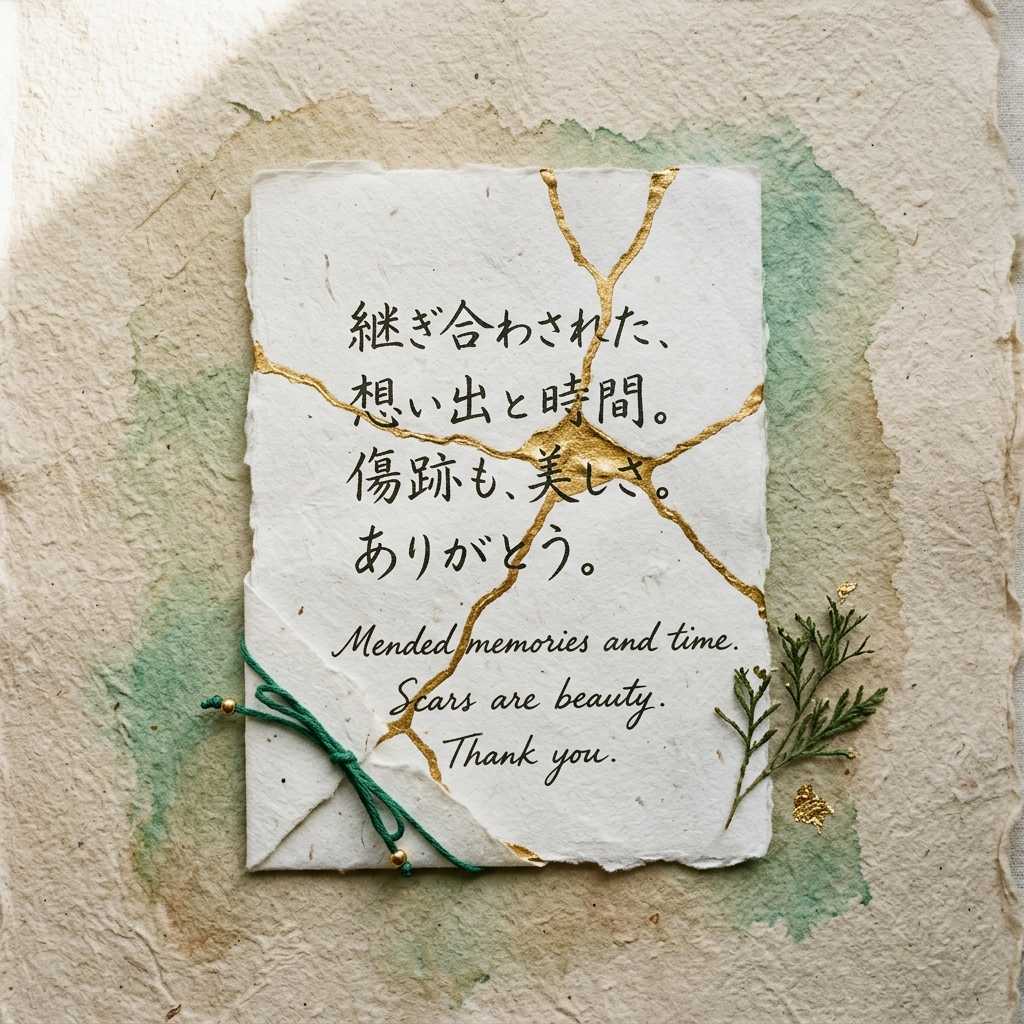 継ぎ合わされた、
想い出と時間。
傷跡も、美しさ。
ありがとう。
Mended memories and time.
Scars are beauty.
Thank you.